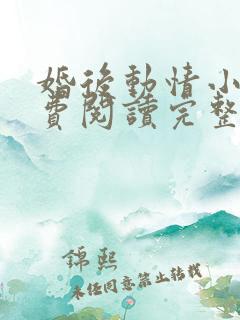 婚後動情小
費閱讀完整
錦熙
未经同意禁止转载